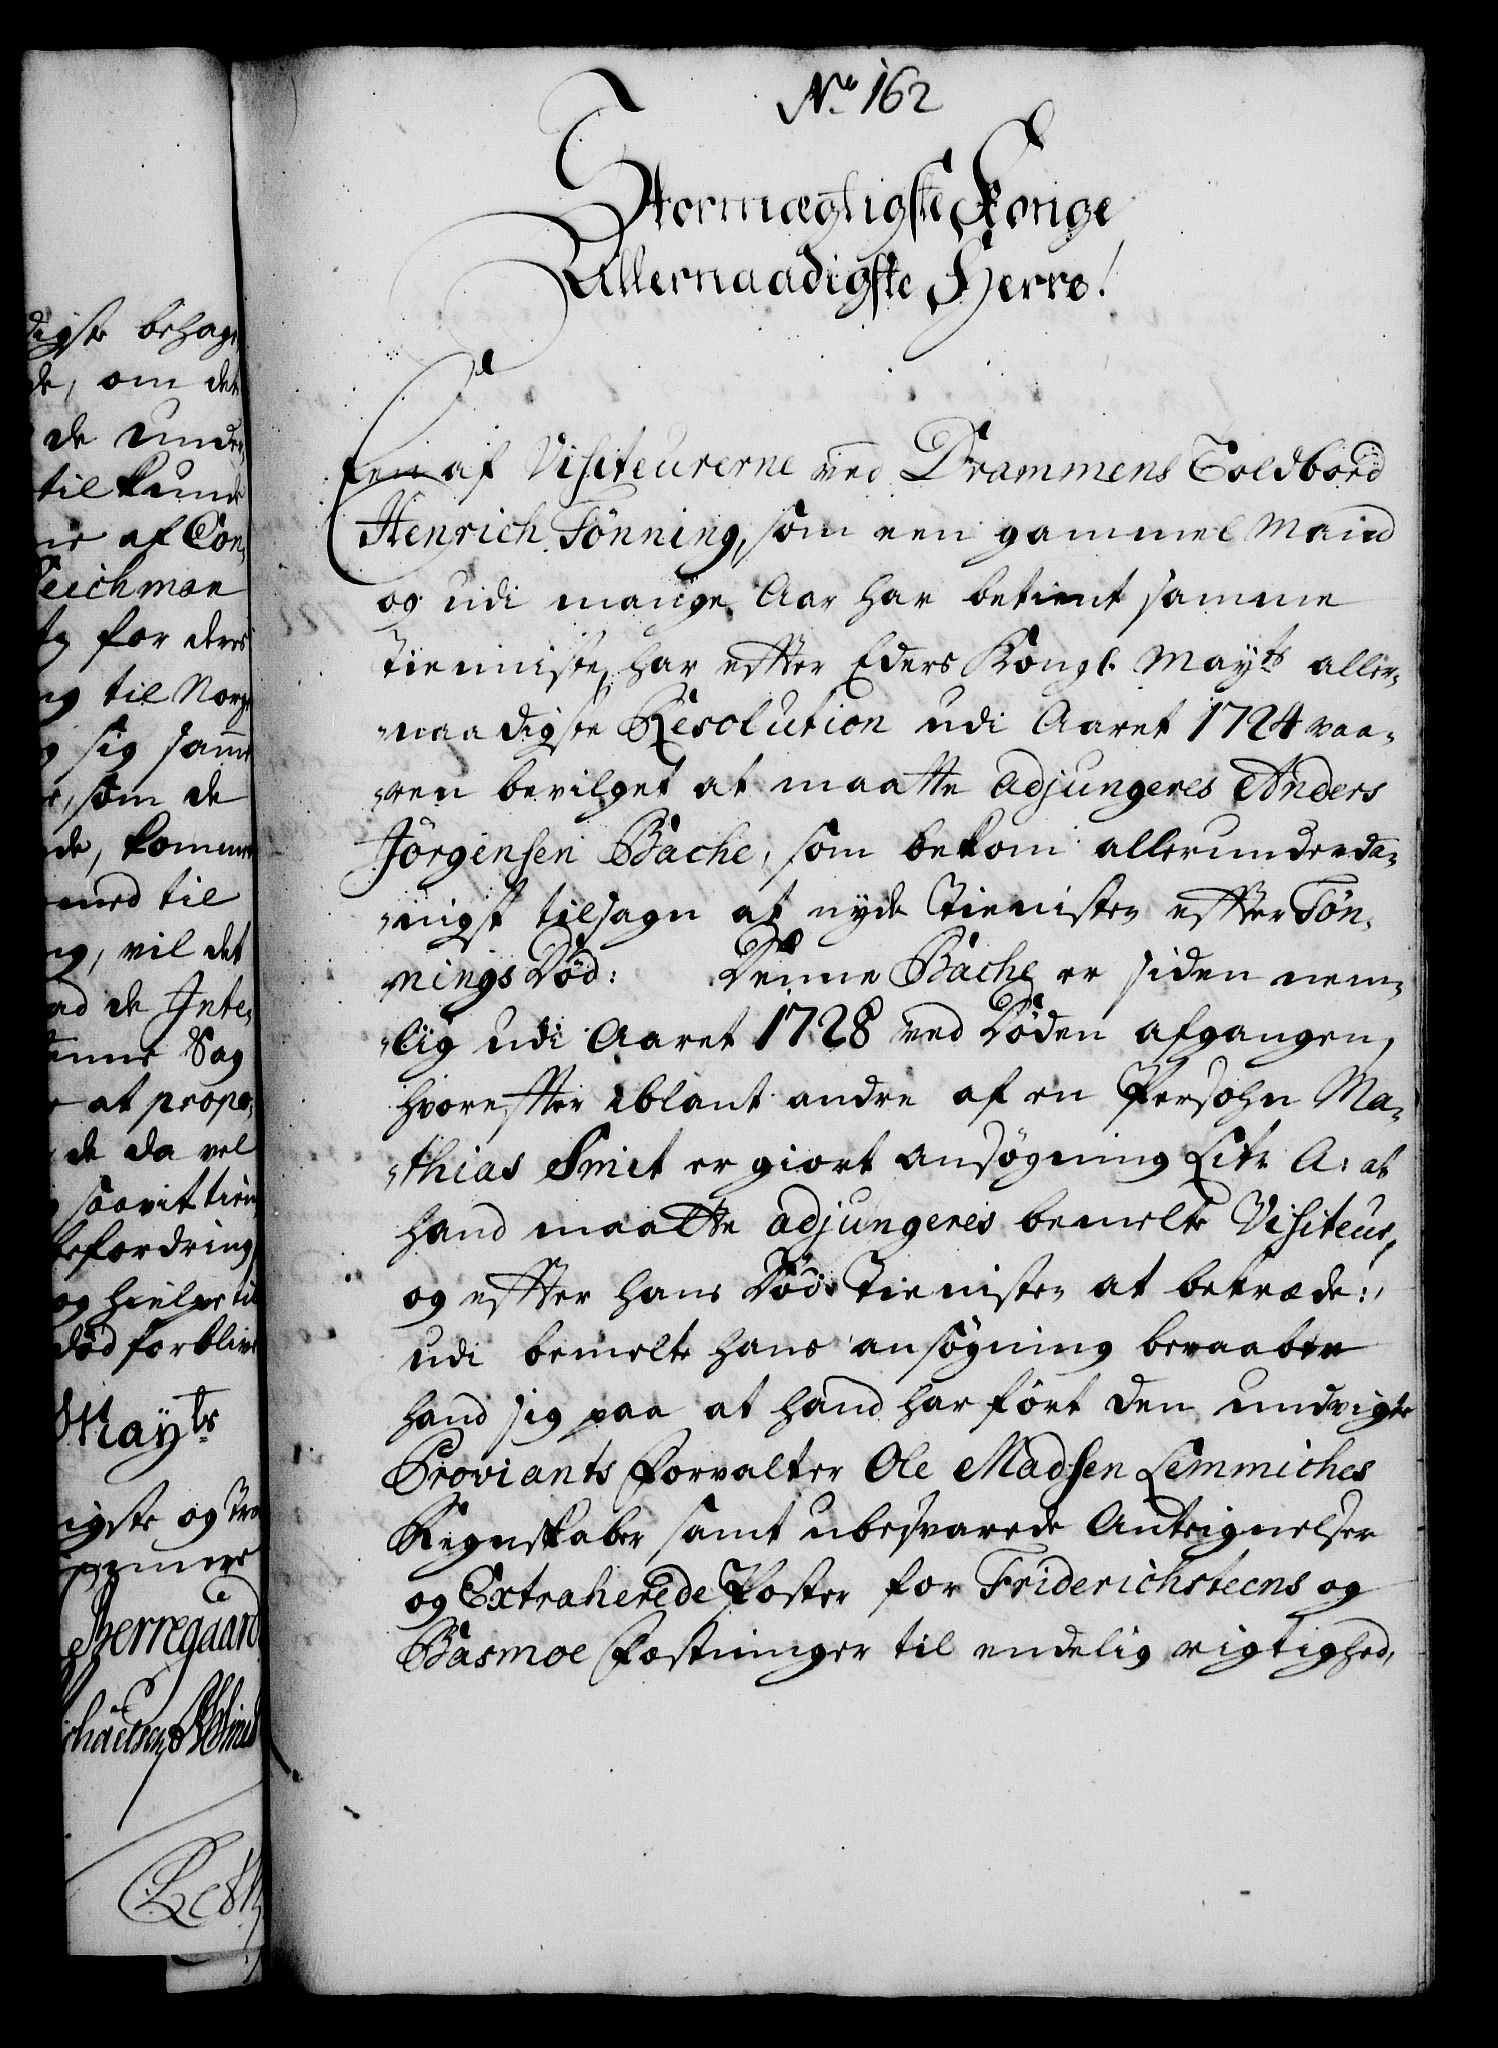 No 162
Stormægtigste Konge
Allernaadigste Herre!
Een af Visiteurerne ved Drammens Toldbord
Henrich Tönning, som een gammel Mand
og udi mange Aar har betient samme
Tienniste, har effter Eders Kongl. Mayts aller-
naadigste Resolution udi Aaret 1724 vaa-
ren bevilget at maatte adjungeres Anders
Jörgensen Bache, som bekom allerunderda-
nigst tilsagn at nyde Tienisten effter Tön-
nings Död: Denne Bache er siden nem-
lig udi Aaret 1728 ved Döden afgangen,
hvoreffter iblant andre af en Persohn Ma-
thias Smit er giort ansögning Litr A: at
hand maatte adjungeres bemelte Visiteur,
og effter hans Död Tienisten at betræde:
udi bemelte hans ansögning beraaber
hand sig paa at hand har fört den undvigte
Proviants Forvalter Ole Madsen Lemmiches
Regnskaber samt ubesvarede Antegnelser
og Extraherede Poster for Friderichsteens og
Basmoe Fæstninger til endelig rigtighed,
digste behage
de, om det
de under
til kunde
af Con-
Teichman
for deres
ng til Norge
sig samme
som de
de, komme
med til
ng, vil det
ad de Inte-
denne Sag
at propo-
de da vel
saavit tien
befordring
og hielpe til
död forblive
Mayts
igste og Tro
Bierregaard